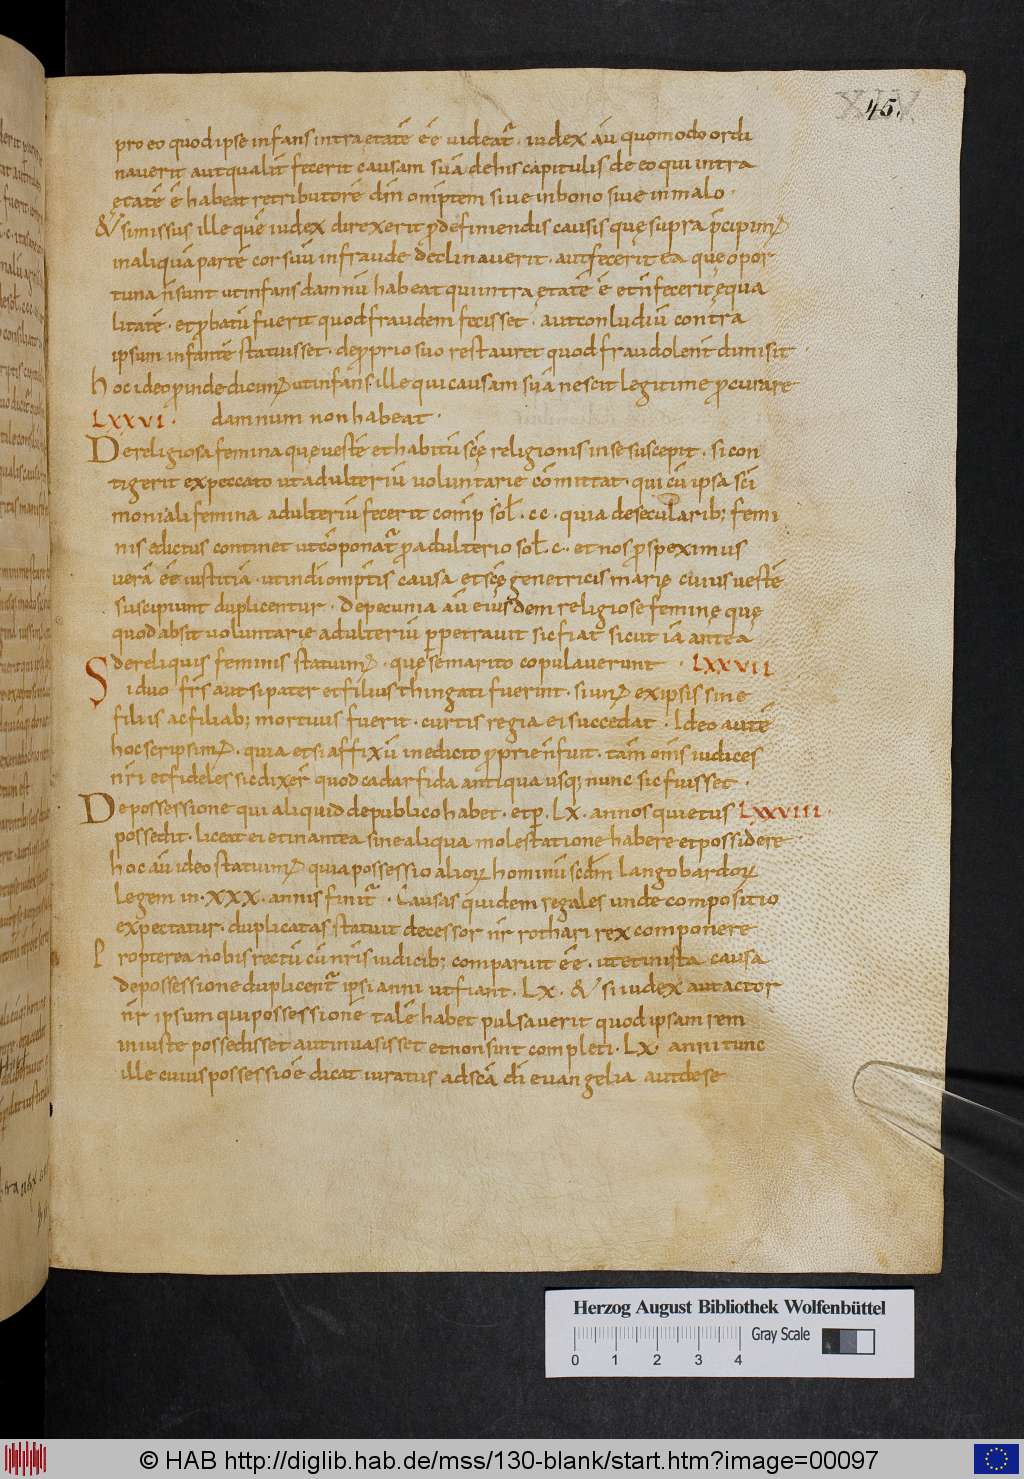 45.
pro eo quod ipse infans intra ętatē ēē uideat᷑ · iudex aū quomodo ordi
nauerit aut qualit̄ fecerit causam suā de his capitulis de eo qui intra
ętatē ē habeat retributorē dn̄m om̄iptem siue in bono siue in malo ·
& si missus ille quē iudex direxerit p̄ definiendis causis quę supra p̄cipim᷒
in aliquā partē cor suū in fraude declinauerit · aut fecerit ea quę opor
tuna n̄ sunt ut infans damnū habeat qui intra ętatē ē et n̄ fecerit ęqua
litatē · et ꝓbatū fuerit quod fraudem fecisset · aut conludiū contra
ipsum infantē statuisset · de ꝓprio suo restauret quod fraudolent̄ dimisit ·
hoc ideo ꝓinde dicim᷒ ut infans ille qui causam suā nescit legitime ꝓcurare
LXXVI · damnum non habeat ·
De religiosa femina quę uestē et habitū scę̄ religionis in se suscepit · si con
tigerit ex peccato ut adulteriū uoluntarie cōmittat · qui cū ipsa sc̄i
moniali femina adulteriū fecerit comp̄ sol̄ · cc · quia de secularib; femi
nis edictus continet ut cōponat᷑ ꝓ adulterio sol̄ · c · et nos ꝓspeximus
uerā ēē iustitiā · ut in dī om̄ptis causa et scę̄ genetricis marię cuius uestē
suscipiunt duplicentur · de pecunia aū eiusdem religiose feminę quę
quod absit uoluntarie adulteriū ꝑpetrauit sic fiat sicut iā antea
de reliquis feminis statuim᷒ · quę se marito copulauerunt · LXXVII
Si duo frs̄ aut si pater et filius thingati fuerint · si un᷒ ex ipsis sine
filiis ac filiab; mortuus fuerit · curtis regia ei succedat · Ideo autē
hoc scripsim᷒ · quia etsi affixū in edicto ꝓprie n̄ fuit · tam̄ om̄s iudices
nr̄i et fideles sic dixer̄ quod cadarfida antiqua usq; nunc sic fuisset ·
De possessione qui aliquid de publico habet · et ꝑ · LX · annos quietus LXXVIII ·
possedit · liceat ei et in antea sine aliqua molestatione habere et possidere ·
hoc aū ideo statuim᷒ quia possessio alioꝝ hominū scd̄m langobardoꝝ
legem in · XXX · annis finit᷑ · Causas quidem regales unde compositio
expectatur · duplicatas statuit decessor nr̄ rothari rex componere
Propterea nobis rectū cū nr̄is iudicib; comparuit ēē · ut et in ista causa
de possessione duplicent᷑ ipsi anni ut fiant · LX · & si iudex aut actor
nr̄ ipsum qui possessione talē habet pulsauerit quod ipsam rem
iniuste possedisset aut inuasisset et non sint completi · LX · anni tunc
ille cuius possessiō ē dicat iuratus ad sc̄a dī euangelia aut de se
Herzog August Bibliothek Wolfenbüttel
0 1 2 3 4 Gray Scale
© HAB http://diglib.hab.de/mss/130-blank/start.htm?image=00097